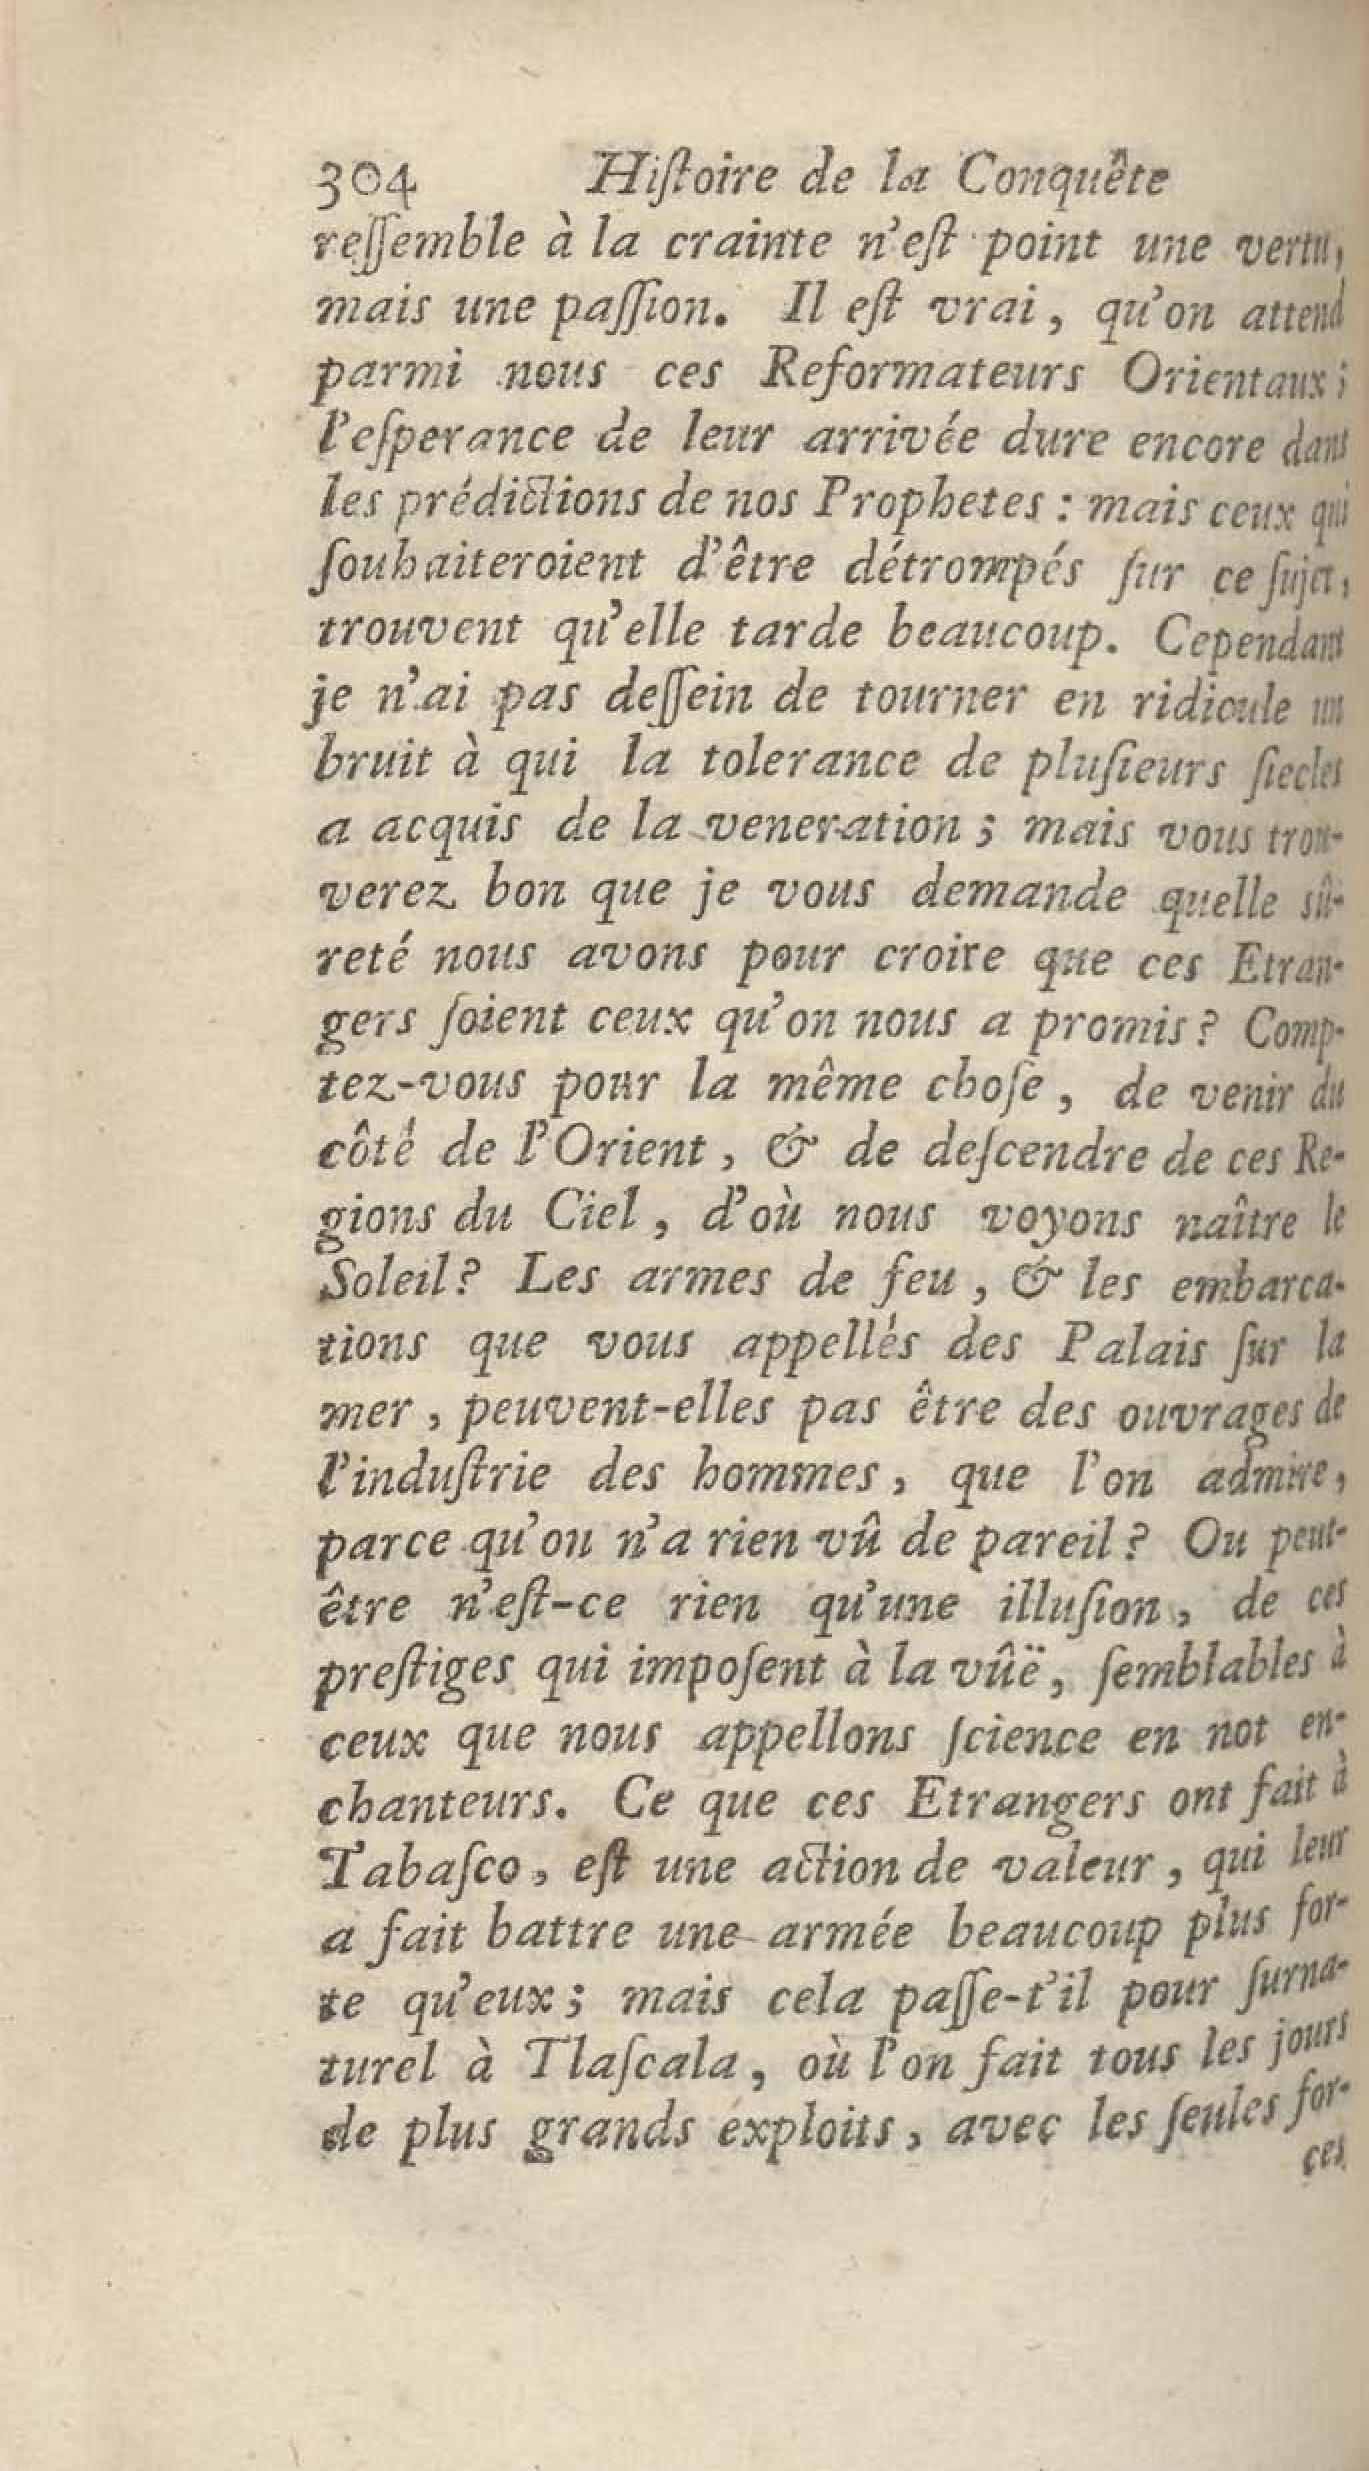 304 Hiſtoire de la Conquête
reſſemble à la crainte n'eſt point une vertu,
mais une paſſion. Il eſt vrai, qu'on attend
parmi nous ces Reformateurs Orientaux;
l'eſperance de leur arrivée dure encore dans
les prédictions de nos Prophetes : mais ceux qui
ſouhaiteroient d'être détrompés ſur ce ſujet,
trouvent qu'elle tarde beaucoup. Cependant
je n'ai pas deſſein de tourner en ridicule un
bruit à qui la tolerance de pluſieurs ſiecles
a acquis de la veneration ; mais vous trou-
verez bon que je vous demande quelle sû-
reté nous avons pour croire que ces Etran-
gers ſoient ceux qu'on nous a promis ? Comp-
tez-vous pour la même choſe, de venir du
côté de l'Orient, & de deſcendre de ces Re-
gions du Ciel, d'où nous voyons naître le
Soleil ? Les armes de feu, & les embarca-
tions que vous appellés des Palais ſur la
mer, peuvent-elles pas être des ouvrages de
l'induſtrie des hommes, que l'on admire,
parce qu'on n'a rien vû de pareil ? Ou peut-
être n'eſt-ce rien qu'une illuſion, de ces
preſtiges qui impoſent à la vûë, ſemblables à
ceux que nous appellons ſcience en not en-
chanteurs. Ce que ces Etrangers ont fait à
Tabaſco, eſt une action de valeur, qui leur
a fait battre une armée beaucoup plus for-
te qu'eux ; mais cela paſſe-t'il pour ſurna-
turel à Tlaſcala, où l'on fait tous les jours
de plus grands exploits, avec les ſeules for-
ces